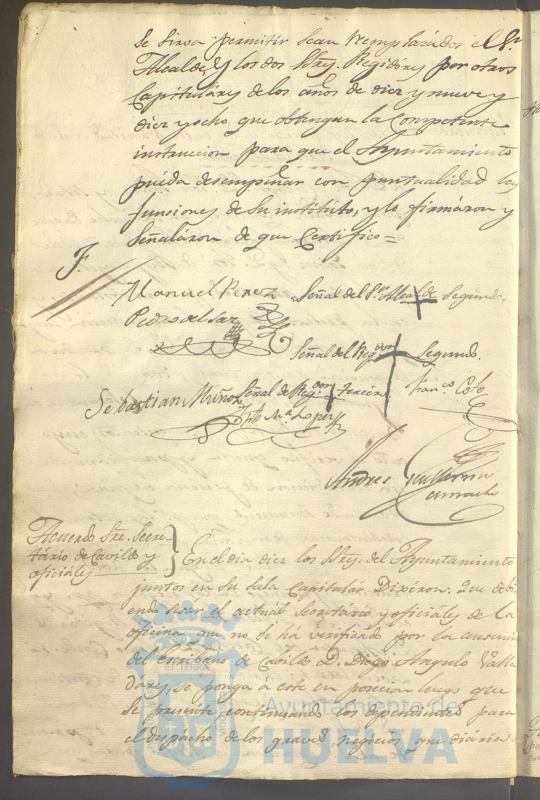 Se sirva permitir sean remplazados el Sr.
Alcalde, y los dos Sres. Regidores por otros
Capitulares de los años de diez y nueve y
diez y ocho que obtengan la Competente
instruccion para que el Ayuntamiento
pueda desempeñar con puntualidad las
funciones de su instituto, y lo firmaron y
Señalaron de que Certifico =
F.
Manuel Perez Señal del Sr. Alcalde Segundo.
Pedro del Saz
Señal del Regdor Segundo.
Sebastian Muñoz Señal de Regdor tercero. Franco. Coto
Ma. Lopez
Andres Guillermo
Camacho
Acuerdo Sre. Secre-
tario de Cavildo y
oficiales
En el dia diez los Sres. del Ayuntamiento
juntos en su Sala Capitular Dixeron: Que debi
endo jurar el actual Secretario y oficiales de la
oficina que no se ha verificado por la ausencia
del Escribano de Cabildo D. Diego Angulo Valla
dares, se ponga á este en posecion luego que
se presente, continuando los dependientes para
el despacho de los graves negocios que diaria
ET TERRÆ
Ayuntamiento de
HUELVA